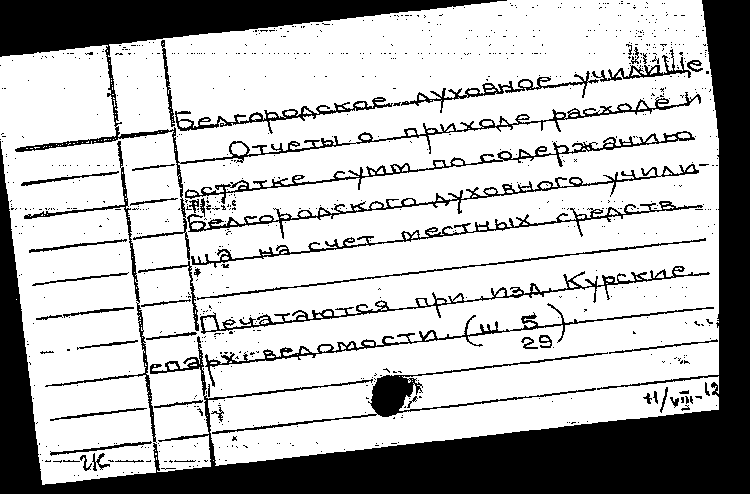 Белгородское духовное училище.
Отчеты о приходе, расходе и
остатке сумм по содержанию
Белгородского духовного учили-
ща на счет местных средств
Печатаются при изд. Курские
епарх. ведомости. (ш. 5/29).
11/VIII-12